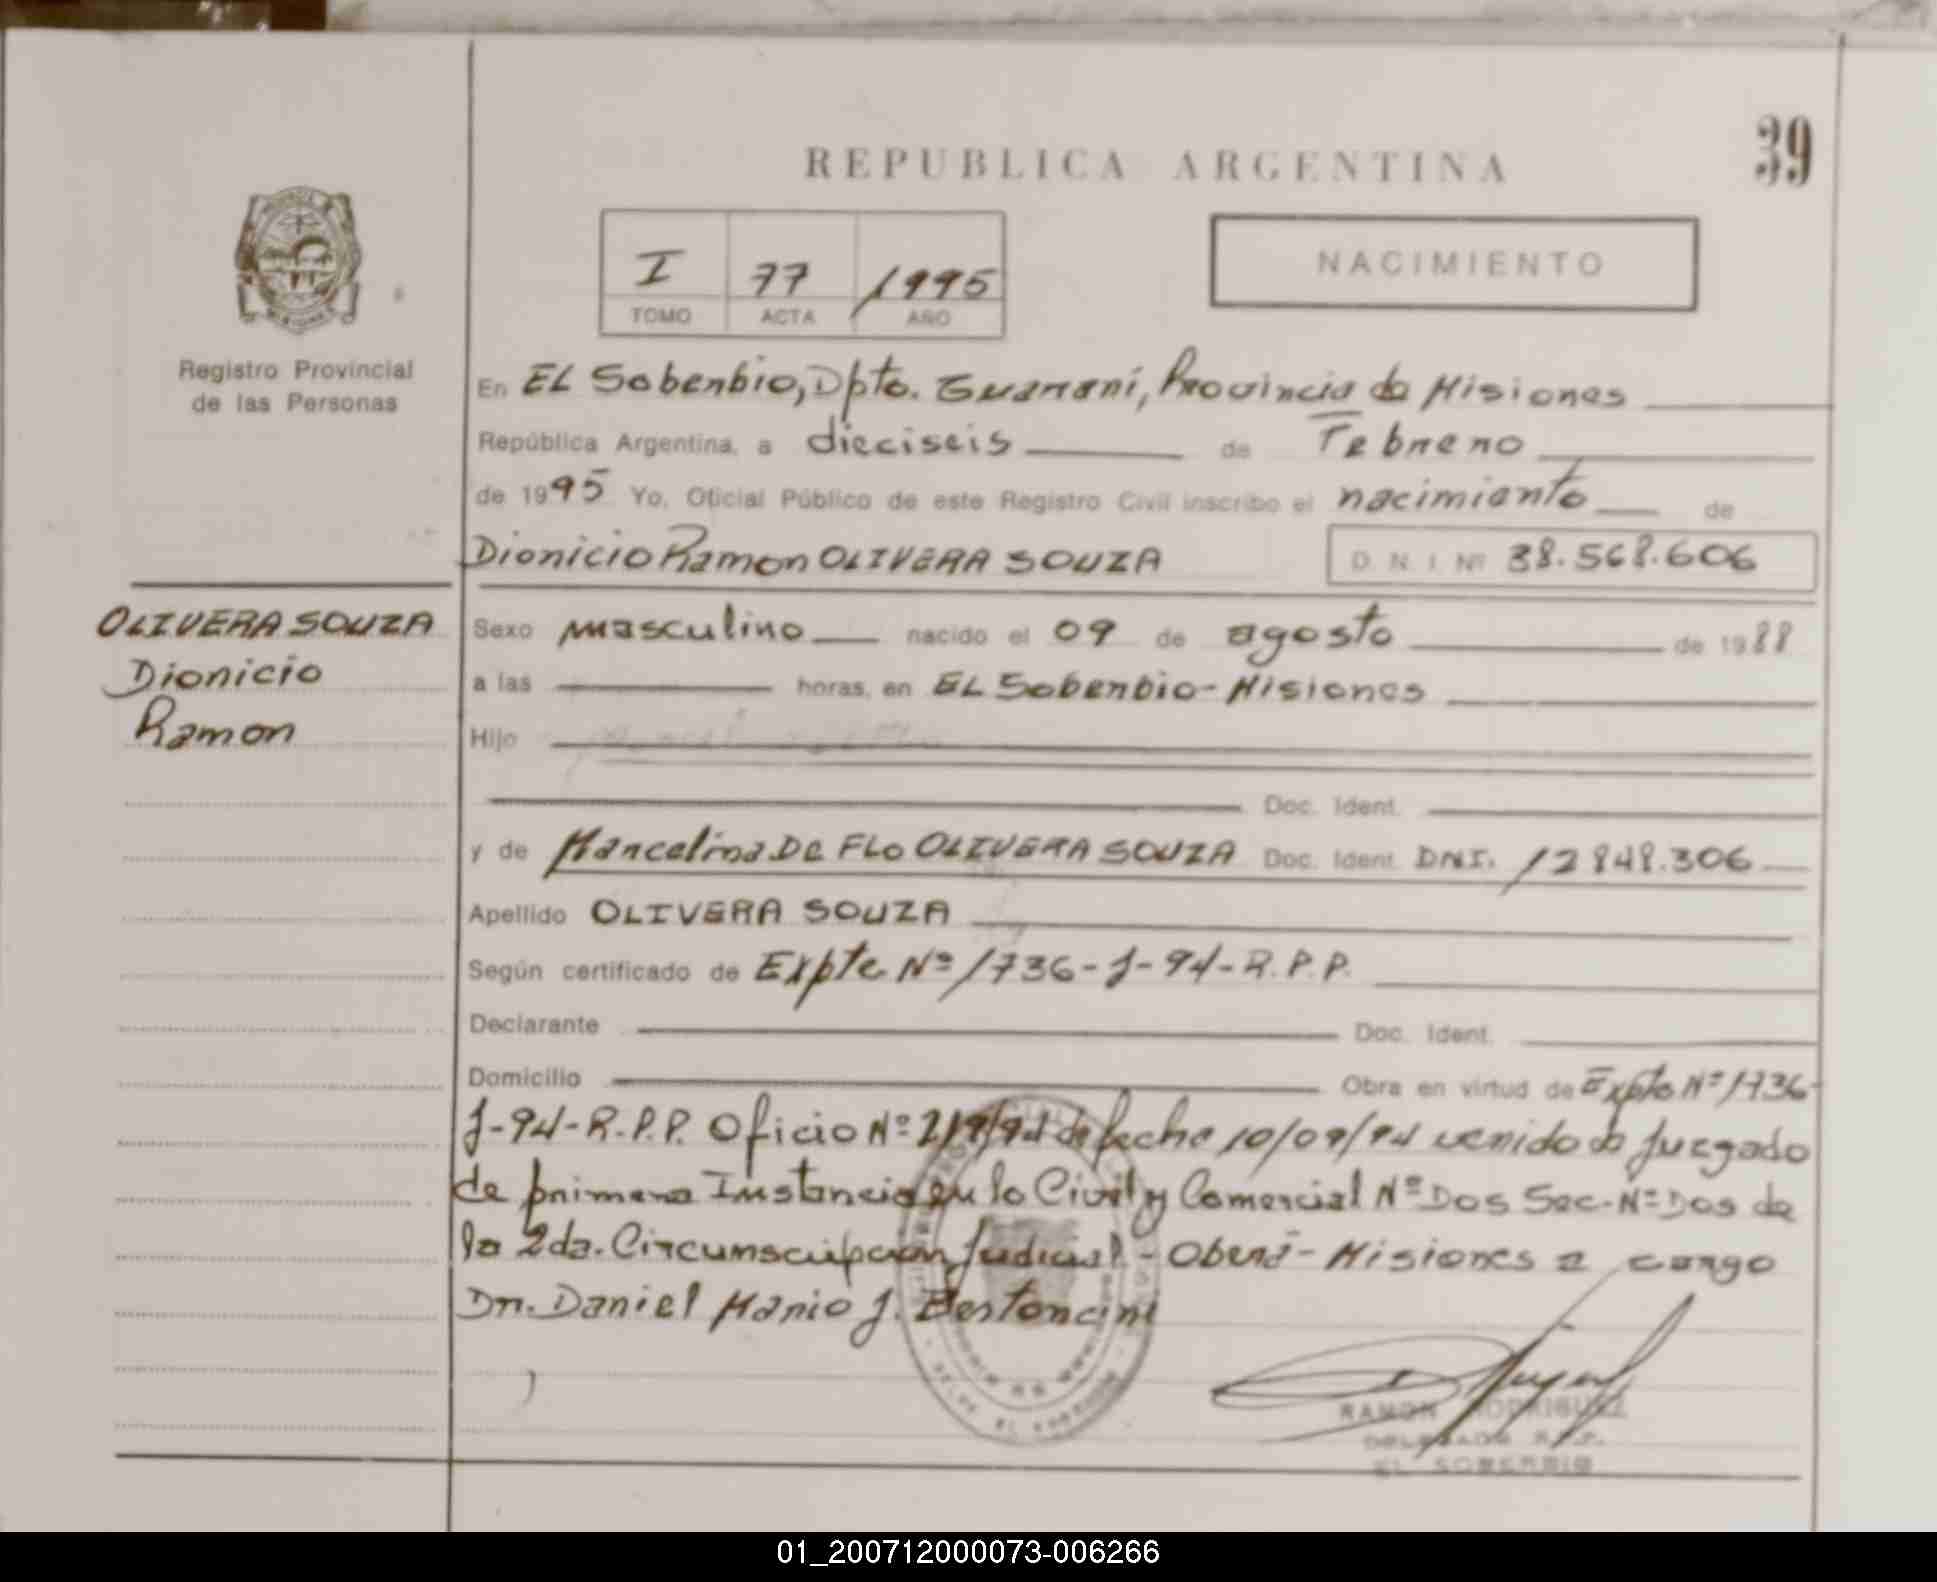 39
REPUBLICA ARGENTINA
I 77 1995
TOMO ACTA AÑO
NACIMIENTO
Registro Provincial
de las Personas
En EL Soberbio, Dpto. Guaraní, Provincia de Misiones
República Argentina, a dieciseis de Febrero
de 1995 Yo, Oficial Público de este Registro Civil inscribo el nacimiento de
Dionicio Ramon OLIVERA SOUZA D. N. I. Nº 38.568.606
OLIVERA SOUZA
Dionicio
Ramon
Sexo masculino nacido el 09 de agosto de 1988
a las horas, en EL Soberbio-Misiones
Hijo
Doc. Ident.
y de Marcelina De FLO OLIVERA SOUZA Doc. Ident. DNI. 12848.306
Apellido OLIVERA SOUZA
Según certificado de Expte Nº 1736-J-94-R.P.P.
Declarante Doc. Ident.
Domicilio Obra en virtud de Expte Nº 1736-
J-94-R.P.P. Oficio Nº de fecha 10/09/94 venido de Juzgado
de primera Instancia en lo Civil y Comercial Nº Dos Sec. Nº Dos de
la 2da. Circunscripcion Judicial - Oberá - Misiones a cargo
Dr. Daniel Mario J. Bertoncini
RAMON RODRIGUEZ
DELEGADO R.P.P.
EL SOBERBIO
01_200712000073-006266